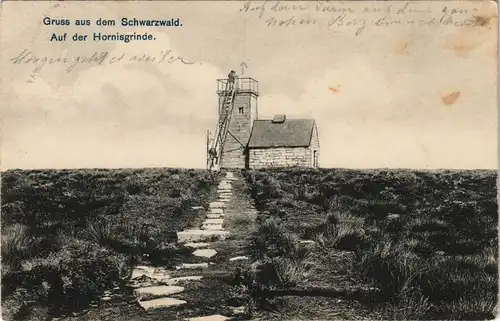 Gruss aus dem Schwarzwald.
Auf der Hornisgrinde.
Auf dem Turm auf dem ganz
hohen Berg
Morgen geht es weiter